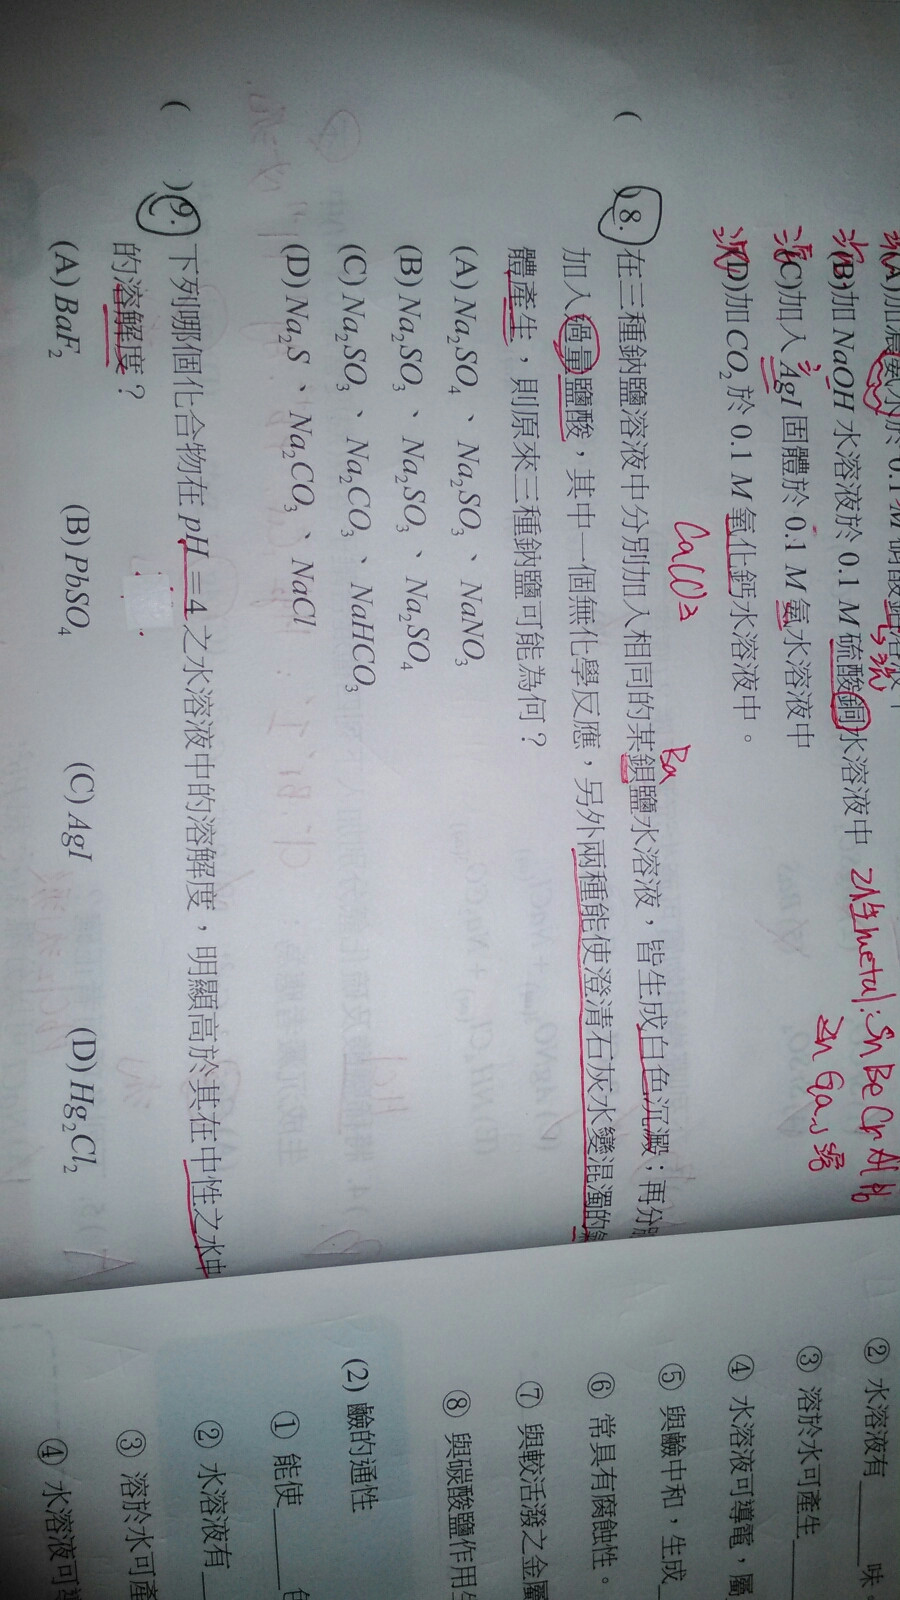 (A)加濃氨水於 0.1 M 硝酸
沉(B)加 NaOH 水溶液於 0.1 M 硫酸銅水溶液中
沉(C)加入 AgI 固體於 0.1 M 氨水溶液中
沉(D)加 CO₂ 於 0.1 M 氧化鈣水溶液中。
2性metal: Sn Be Cr Al
Zn Ga
Ba
( )8. 在三種鈉鹽溶液中分別加入相同的某鋇鹽水溶液，皆生成白色沉澱；再分別
加入過量鹽酸，其中一個無化學反應，另外兩種能使澄清石灰水變混濁的氣
體產生，則原來三種鈉鹽可能為何？
(A) Na₂SO₄ 、 Na₂SO₃ 、 NaNO₃
(B) Na₂SO₃ 、 Na₂SO₃ 、 Na₂SO₄
(C) Na₂SO₃ 、 Na₂CO₃ 、 NaHCO₃
(D) Na₂S 、 Na₂CO₃ 、 NaCl
( )9. 下列哪個化合物在 pH = 4 之水溶液中的溶解度，明顯高於其在中性之水中
的溶解度？
(A) BaF₂ (B) PbSO₄ (C) AgI (D) Hg₂Cl₂
② 水溶液有 味
③ 溶於水可產生
④ 水溶液可導電，屬
⑤ 與鹼中和，生成
⑥ 常具有腐蝕性。
⑦ 與較活潑之金屬
⑧ 與碳酸鹽作用生
(2) 鹼的通性
① 能使
② 水溶液有
③ 溶於水可產
④ 水溶液可導